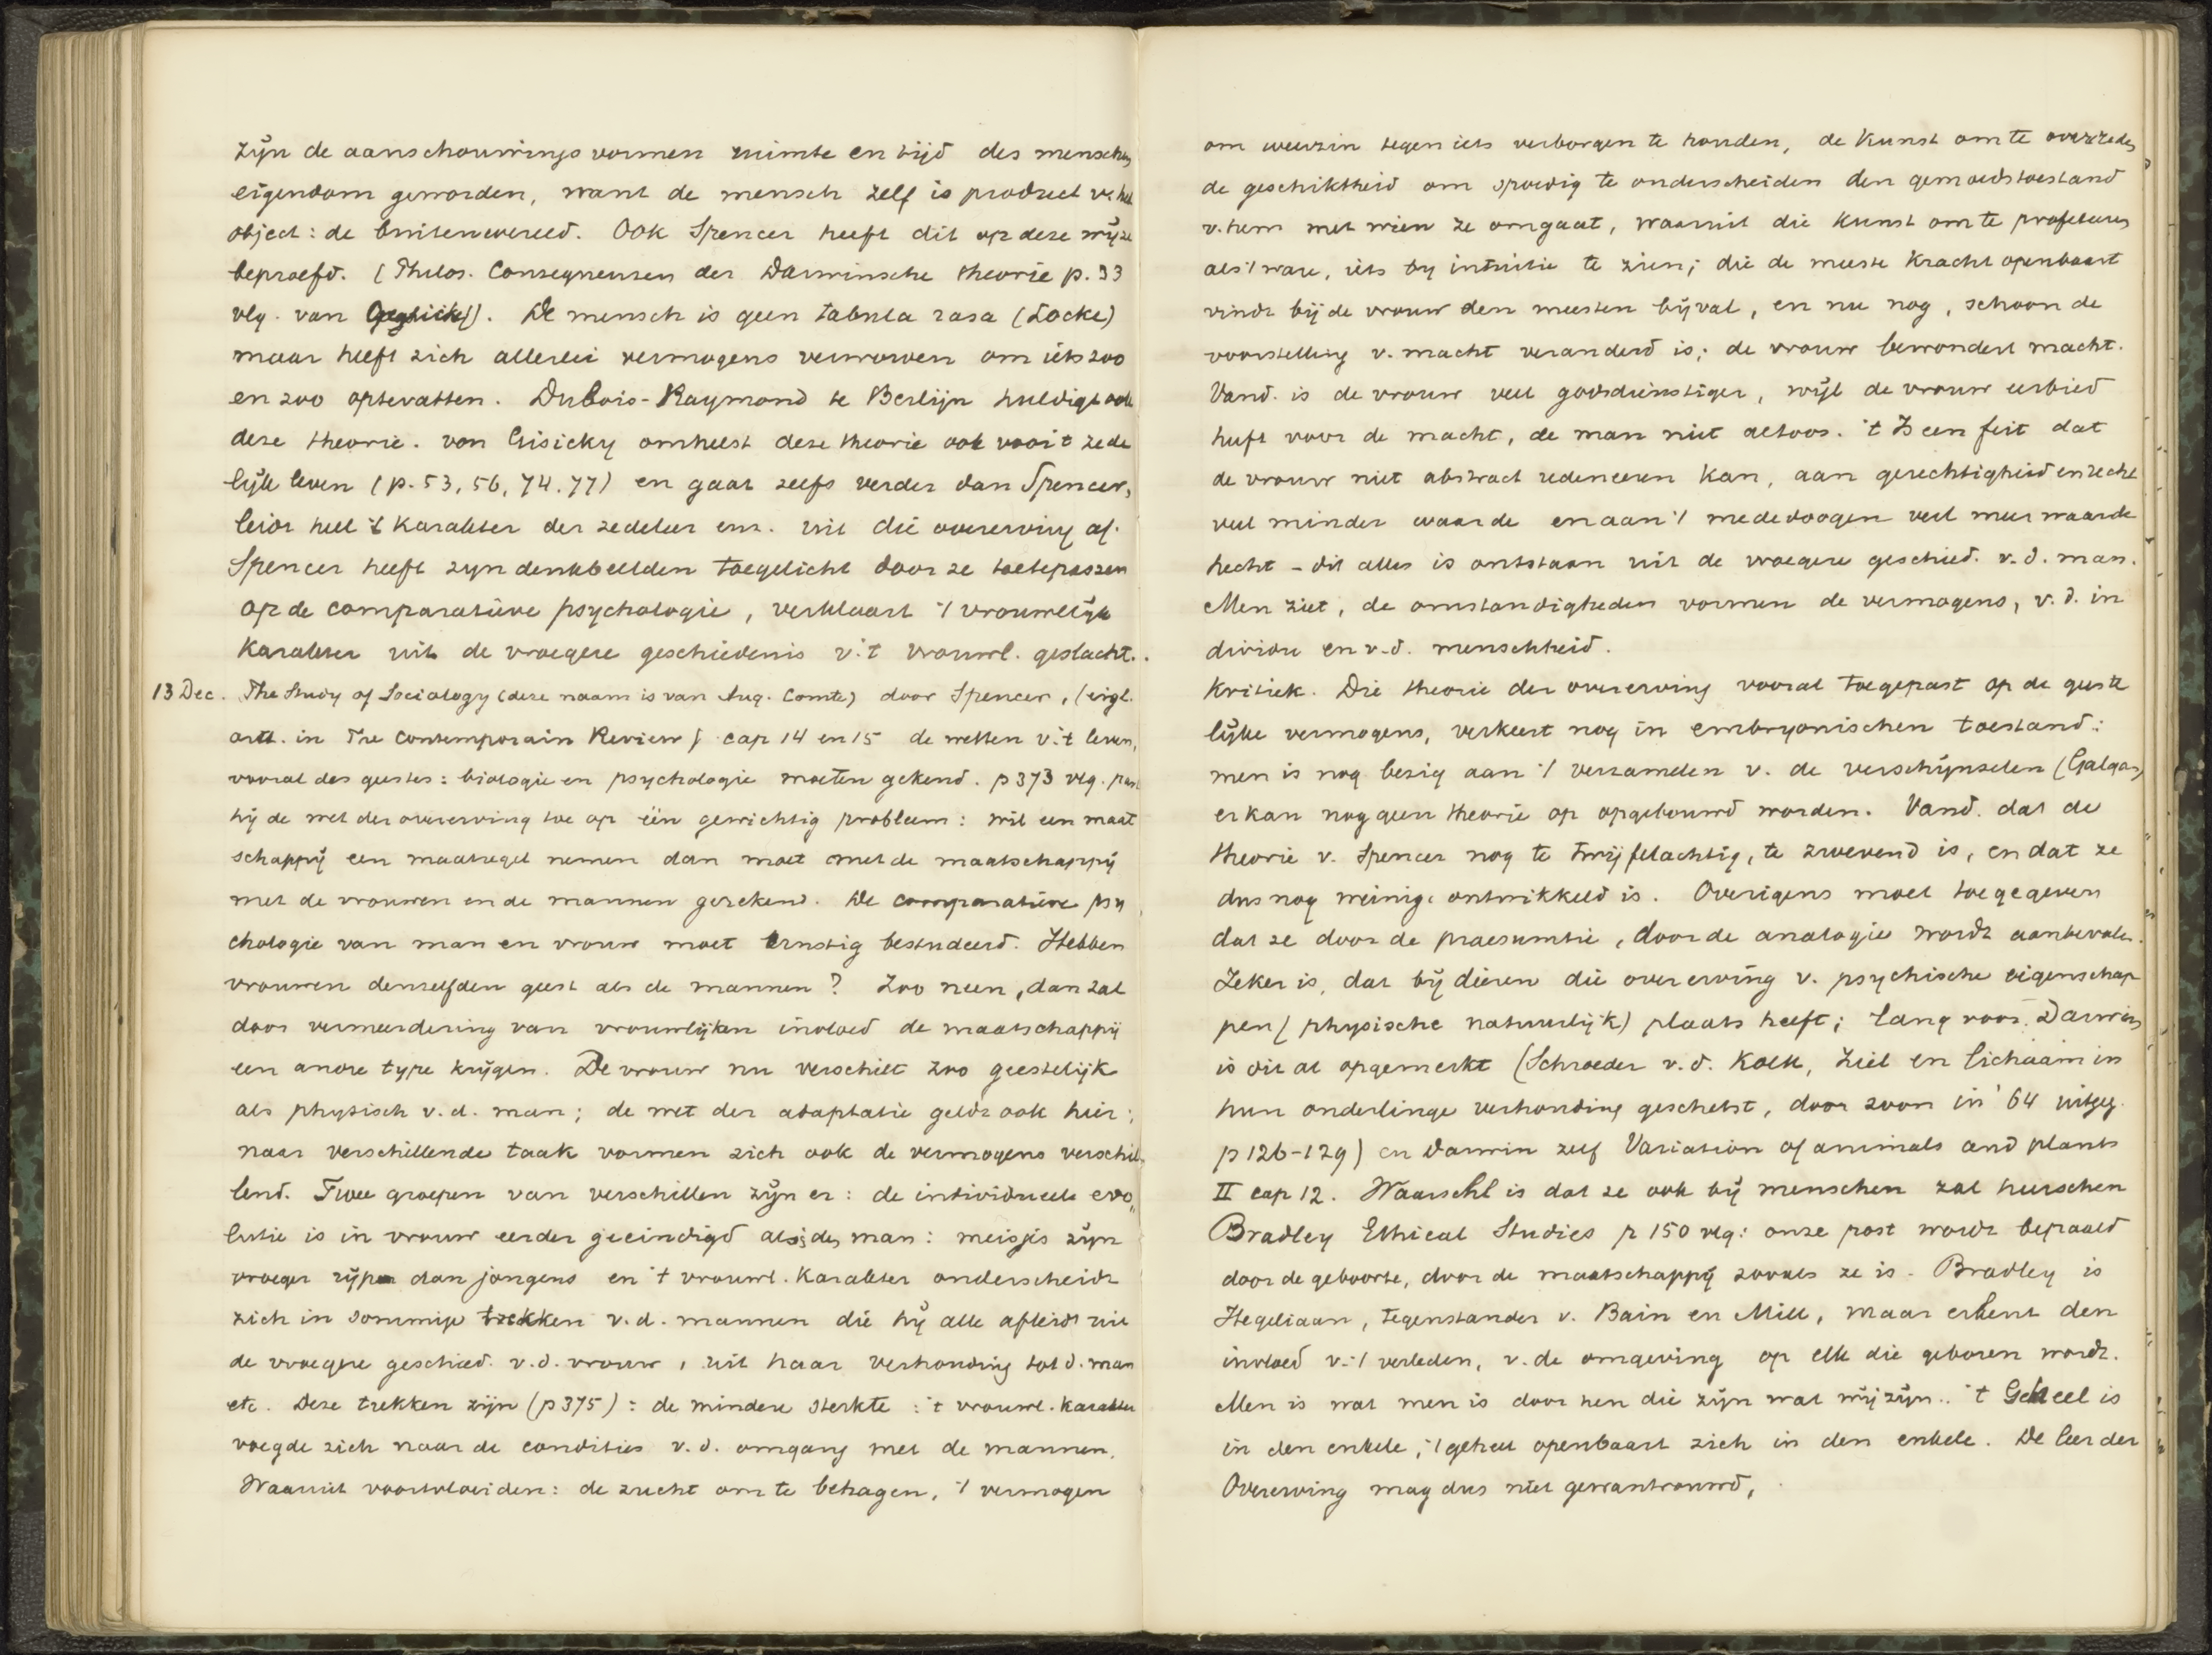 zijn de aanschouwings vormen ruimte en tijd des menschen
eigendom geworden, want de mensch zelf is product v. het
object: de buitenwereld. Ook Spencer heeft dit op deze wijze
beproefd. (Philos. Consequenzen der Darwinsche theorie p. 33
vlg. van). De mensch is geen tabula rasa (Locke)
maar heeft zich allerlei vermogens verworven om iets zoo
en zoo optevatten. Dubois-Raymond te Berlijn huldigt ook
deze theorie. von Gisicky omhelst deze theorie ook voor 't zede
lijk leven (p. 53, 56, 74. 77) en gaat zelfs verder dan Spencer,
leidt heel 't karakter der zedeleer enz. uit die overerving af.
Spencer heeft zijn denkbeelden toegelicht door ze toetepassen
op de comparatieve psychologie, verklaart 't vrouwelijk
karakter uit de vroegere geschiedenis v. 't vrouwl. geslacht.
13 Dec. The Study of Sociology (deze naam is van Aug. Comte) door Spencer, (eigl.
artt. in The Contemporain Review) cap 14 en 15 de wetten v. 't leven,
vooral des geestes: biologie en psychologie moeten gekend. p 373 vlg. past
hij de wet der overerving toe op één gewichtig probleem: wil een maat
schappij een maatregel nemen dan moet met de maatschappij
met de vrouwen en de mannen gerekend. De comparatieve psy
chologie van man en vrouw moet ernstig bestudeerd. Hebben
vrouwen denzelfden geest als de mannen? Zoo neen, dan zal
door vermeerdering van vrouwlijken invloed de maatschappij
een ander type krijgen. De vrouw nu verschilt zoo geestelijk
als physisch v. d. man; de wet der adaptatie geldt ook hier;
naar verschillende taak vormen zich ook de vermogens verschil
lend. Twee groepen van verschillen zijn er: de individueele evo„
lutie is in vrouw eerder geeindigd als i. den man: meisjes zijn
vroeger rijp dan jongens en 't vrouwl. karakter onderscheidt
zich in sommige trekken v. d. mannen die hij alle afleidt uit
de vroegere geschied. v. d. vrouw, uit haar verhouding tot d. man
etc. Deze trekken zijn (p 375): de mindere sterkte: 't vrouwl. karakter
voegde zich naar de condities v. d. omgang met de mannen.
Waaruit voortvloeiden: de zucht om te behagen, 't vermogen
om weerzin tegen iets verborgen te houden, de kunst om te overreden
de geschiktheid om spoedig te onderscheiden den gemoedstoestand
v. hem met wien ze omgaat, waaruit die kunst om te profeteeren
als 't ware, iets by intuitie te zien; die de meeste kracht openbaart
vindt bij de vrouw den meesten bijval, en nu nog, schoon de
voorstelling v. macht veranderd is; de vrouw bewondert macht.
Vand. is de vrouw veel godsdienstiger, wijl de vrouw eerbied
heeft voor de macht, de man niet altoos. 't Is een feit dat
de vrouw niet abstract redeneeren kan, aan gerechtigheid en recht
veel minder waarde en aan 't mededoogen veel meer waarde
hecht - dit alles is ontstaan uit de vroegere geschied. v. d. man.
Men ziet, de omstandigheden vormen de vermogens, v. d. in
dividu en v. d. menschheid.
Kritiek. Die theorie der overerving vooral toegepast op de geeste
lijke vermogens, verkeert nog in embryonischen toestand:
men is nog bezig aan 't verzamelen v. de verschijnselen (Galgar)
er kan nog geen theorie op opgebouwd worden. Vand. dat de
theorie v. Spencer nog te twijfelachtig, te zwevend is, en dat ze
dus nog weinig ontwikkeld is. Overigens moet toegegeven
dat ze door de praesumtie, door de analogie wordt aanbevolen.
Zeker is, dat bij dieren die overerving v. psychische eigenschap
pen (physische natuurlijk) plaats heeft; lang voor Darwin
is dit al opgemerkt (Schroeder v. d. Kolk, Ziel en lichaam in
hun onderlinge verhouding geschetst, door zoon in '64 uitgeg.
p 126-129) en Darwin zelf Variation of animals and plants
II cap 12. Waarschl is dat ze ook bij menschen zal heerschen
Bradley Ethical Studies p 150 vlg: onze post wordt bepaald
door de geboorte, door de maatschappij zooals ze is. Bradley is
Hegeliaan, tegenstander v. Bain en Mill, maar erkent den
invloed v. 't verleden, v. de omgeving op elk die geboren wordt.
Men is wat men is door hen die zijn wat wij zijn.. 't Geheel is
in den enkele, 't geheel openbaart zich in den enkele. De leer der
Overerving mag dus niet gewantrouwd,